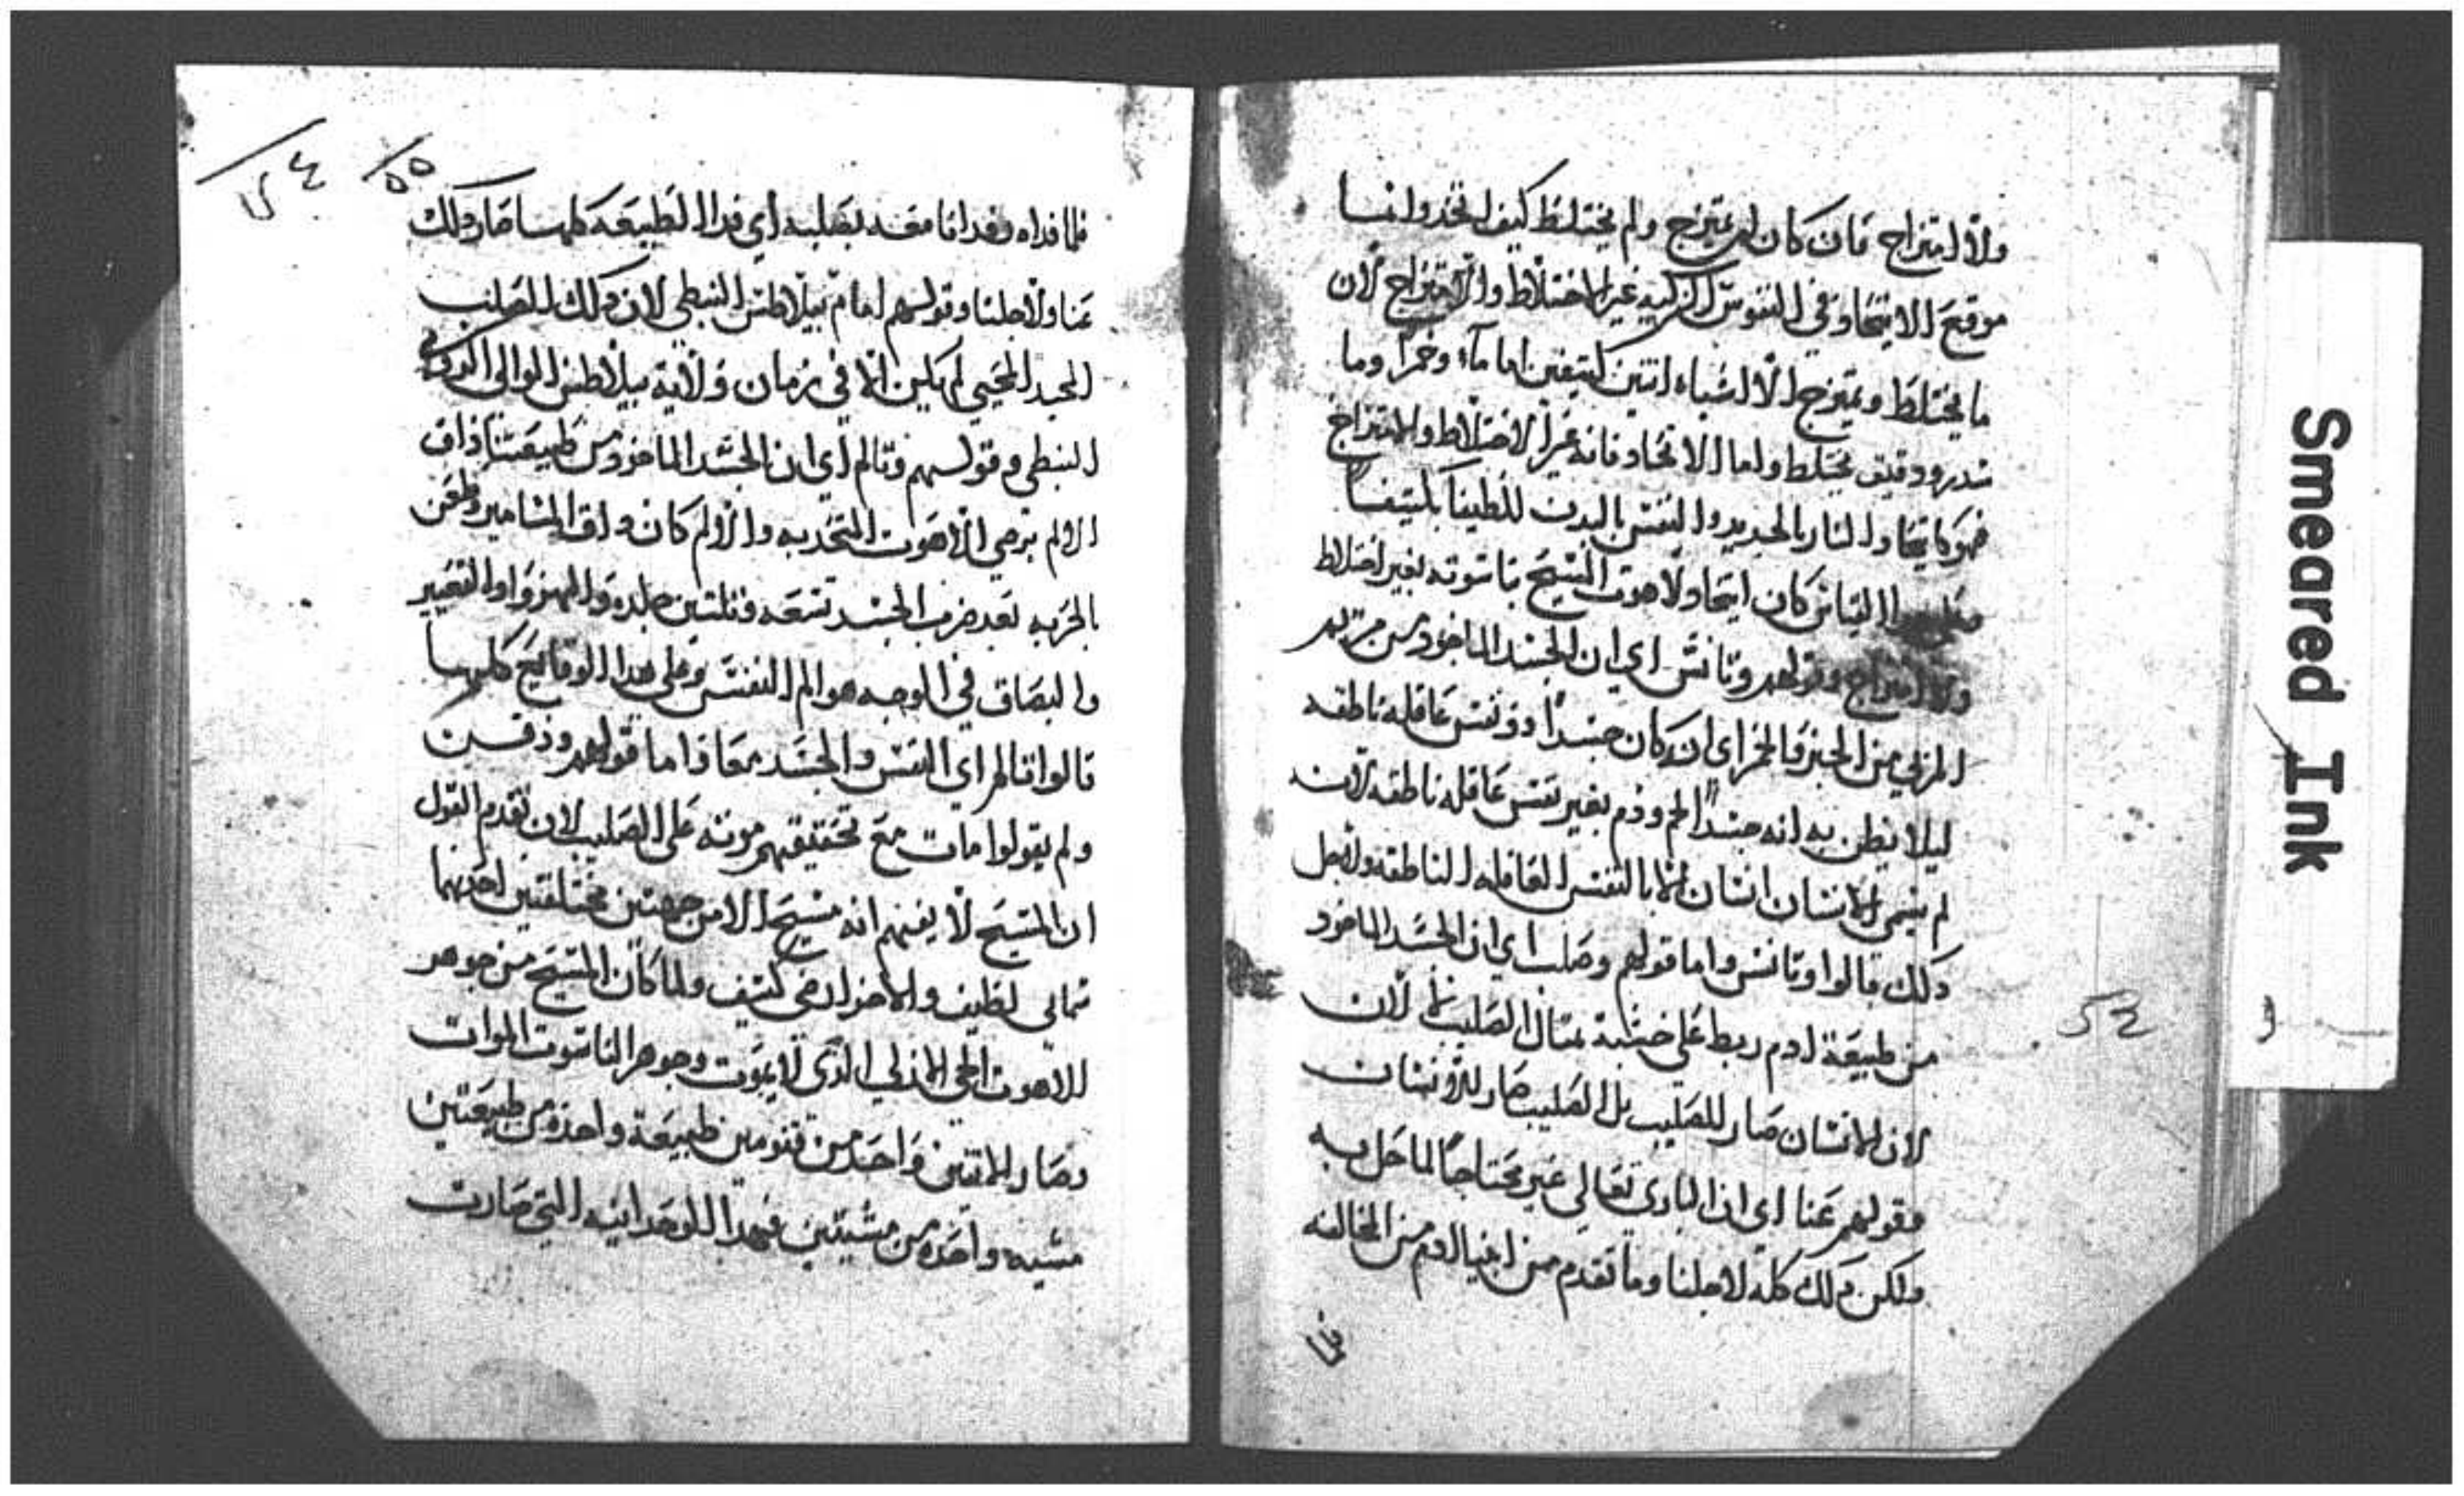 ولا امتزاج فان كان لم يمتزج ولم يختلط كيف اتحدوا انسا
موقع الاتحاد في النفوس الزكيه غير الاختلاط والامتزاج لان
ما يختلط ويمتزج الا الاشياء اتنين كتيفين اما مآء وخمراً وما
ودقيق مختلط واما الاتحاد فانه غير الاختلاط والامتزاج
فهو كاتحاد النار بالحديد والنفس بالبدن للطيفاً بكتيفاً
القياس كان اتحاد لاهوت المسيح بناسوته بغير اختلاط
ولا امتزاج وقولهم وتانس اي ان الجسد الماخود من مريم
من الخبز والخمر اى ان كان جسداً دو نفس عاقله ناطقه
ليلا يظن به انه جسداً لحم ودم بغير نفس عاقله ناطقه لان
لم يسمى الانسان انسان الا بالنفس العاقله الناطقه ولاجل
دلك قالوا وتانس واما قولهم وصلب اي ان الجسد الماخود
من طبيعة ادم ربط على خشبة بمثال الصليب لان
لان الانسان صار للصليب بل الصليب صار للانسان
وقولهم عنا اى ان البارى تعالى غير محتاجاً لما حل به
ولكن دلك كله لاجلنا وما تقدم من ادم من المخالفه
٥٤
فلما
٥٥
٥٤
فلما فداه وفدانا معه بصلبه اي فدا الطبيعه كلها صار دلك
عنا ولاجلنا وقولهم امام بيلاطس النبطي لان دلك الصلب
المجيد المحيي لم يكن الا في زمان ولاية بيلاطس الوالي
النبطي وقولهم وتالم اي ان الجسد الماخود من طبيعتنا داق
الالم برضي الاهوت المتحد به والالم كان داق المسامير وطعن
بالحربه بعد ضرب الجسد تسعه وتلتين جلده والهزو والتعيير
والبصاق في الوجه هو الم النفس وعلى هدا الوقايع كلها
قالوا تالم اي النفس والجسد معا واما قولهم ودفن
ولم يقولوا مات مع تحقيقهم موته على الصليب لان تقدم القول
ان المسيح لا يفهم انه مسيح الا من جهتين مختلفتين احدهما
سمائى لطيف والاخر ارضى كتيف ولما كان المسيح من جوهر
اللاهوت الحى الازلي الذى لا يموت وجوهر الناسوت الموات
وصار الاتنين واحد من قنومين طبيعة واحده من طبيعتين
مشيه واحده من مشيتين فبهدا الوحدانيه التي صارت
Smeared Ink